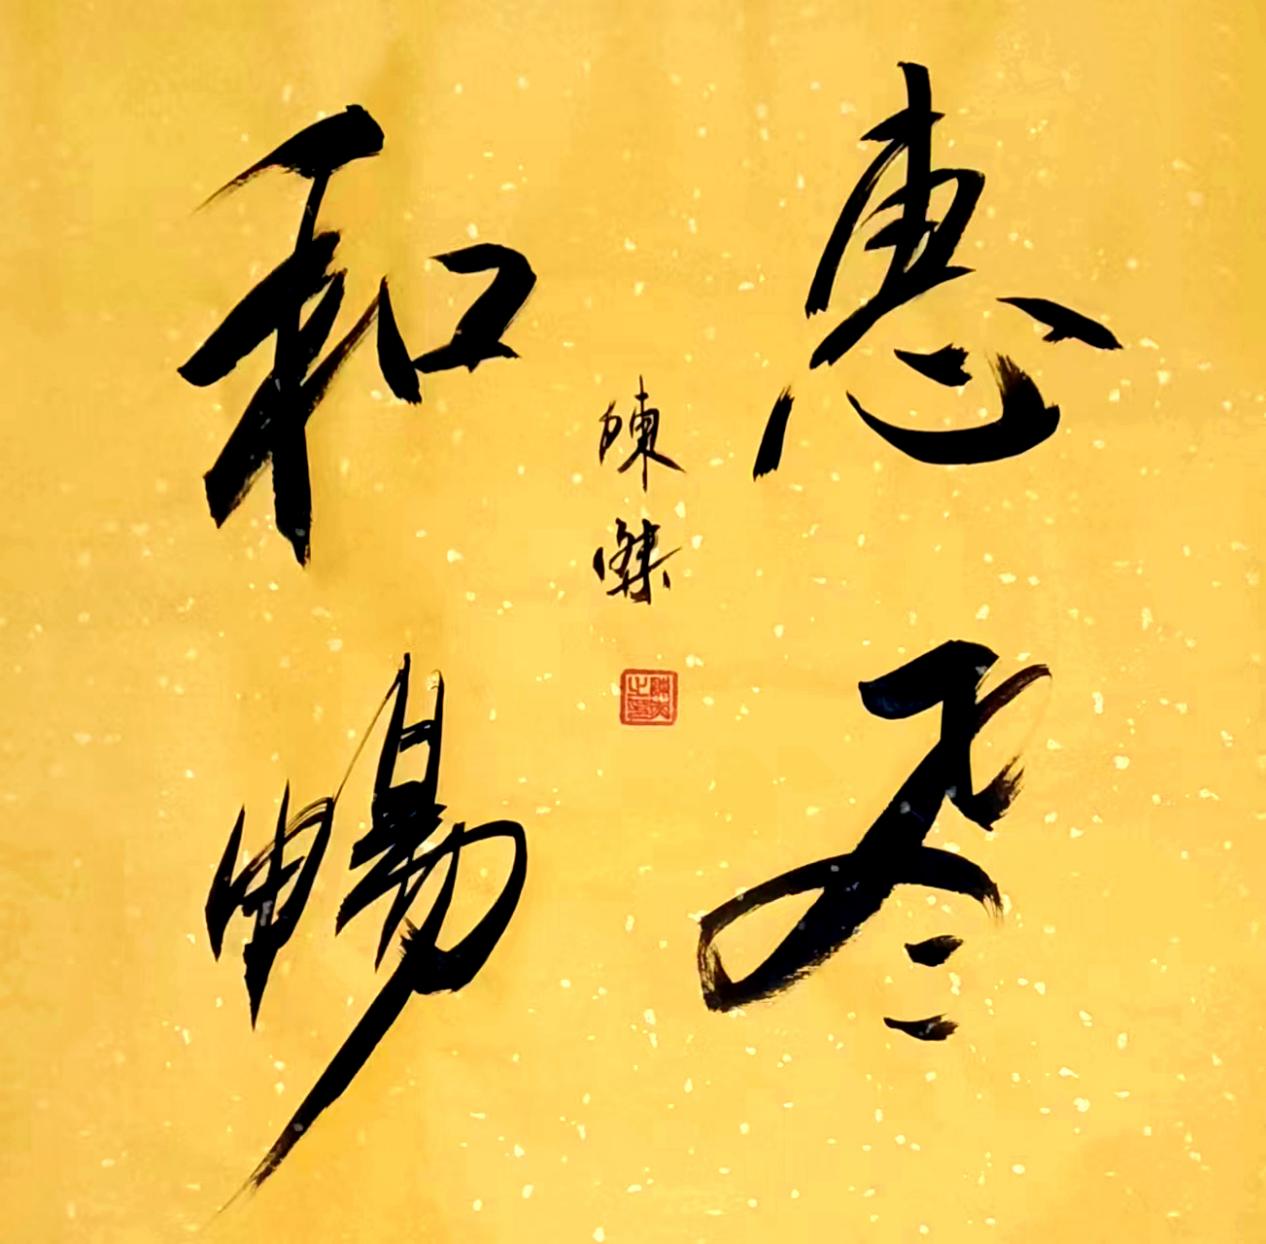 惠風
和暢
陳傑